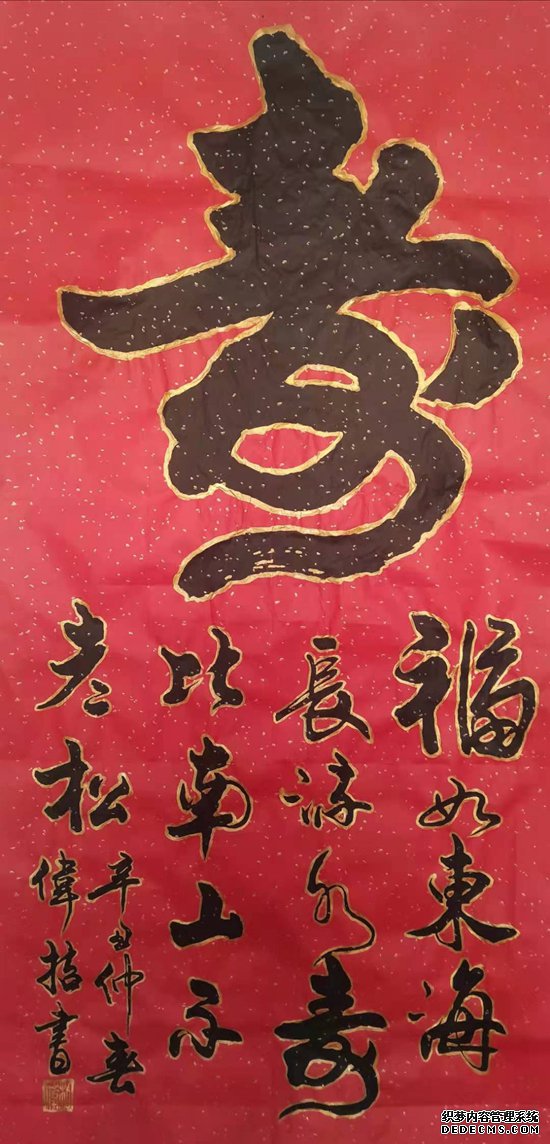 壽
福如東海
長流水壽
比南山不
老松
辛丑仲春
偉括書
织梦内容管理系统
DEDECMS.COM